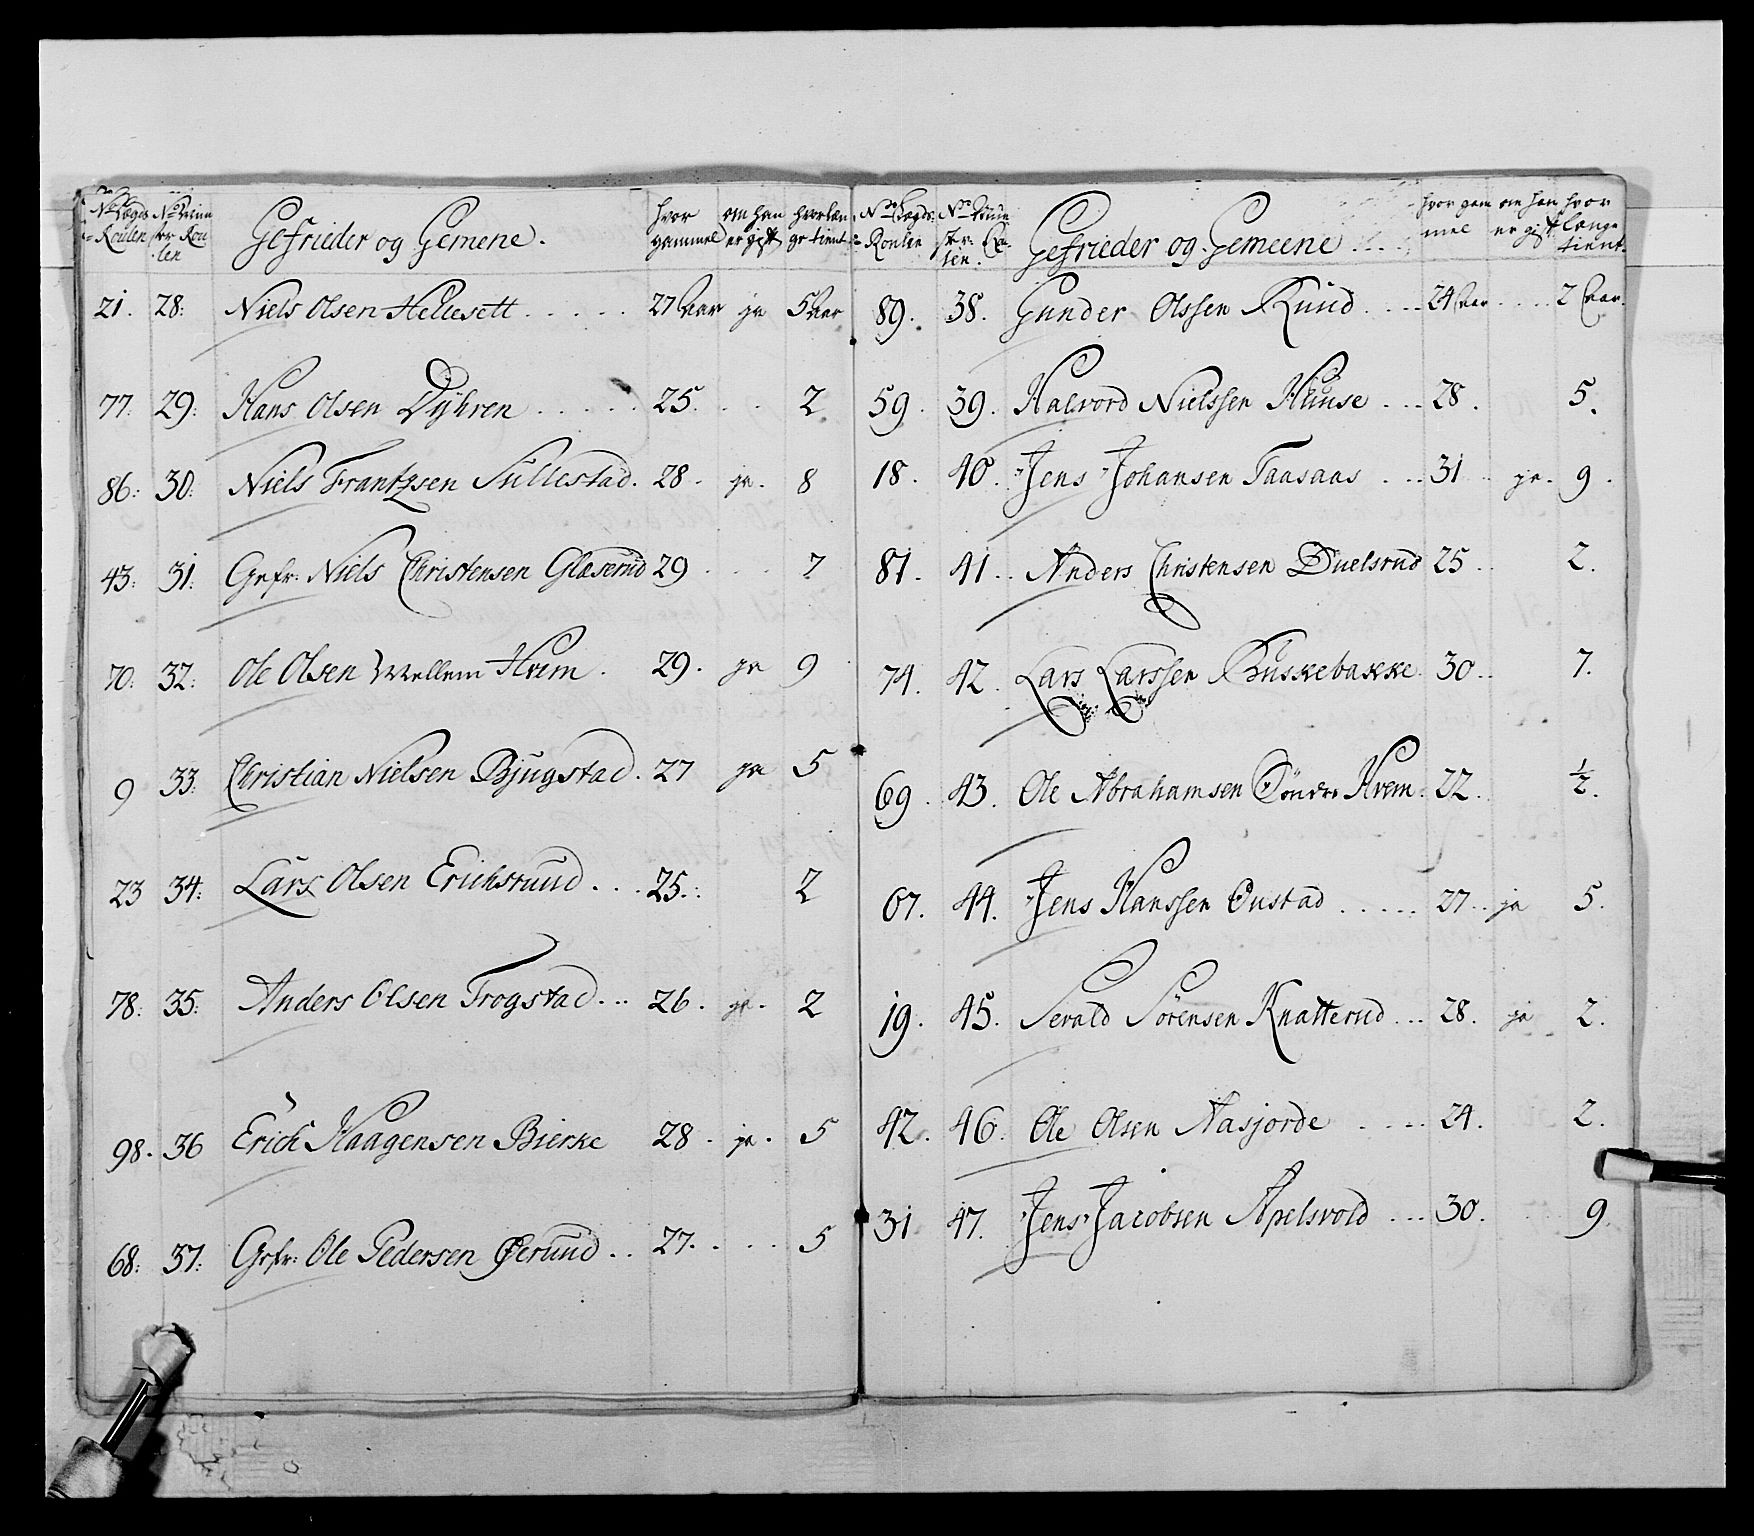 No Lægds Roulen No Mün ster Rou len Gefrieder og Gemene. hvor gammel om han er gift hvorlæn ge tient
21. 28: Niels Olsen Hellesett ..... 27 Aar ja 5 Aar
77: 29: Hans Olsen Dÿhren ..... 25. .. 2
86: 30: Niels Frantzsen Süllestad. 28. ja. 8
43: 31: Gefr: Niels Christensen Glæserud 29 ...
70: 32: Ole Olsen Mellem Hvem. 29. ja 9
9 33: Christian Nielsen Bjugstad. 27 ja 5
23 34: Lars Olsen Erichsruud ... 25.: 2
78: 35: Anders Olsen Trogstad ... 26. ja. 2
98. 36 Erich Haagensen Bierke 28. ja. 5
68: 37: Gefr: Ole Pedersen Øeruud .. 27. ... 5
No Lægds Roulen No Mün ster Rou len. Gefrieder og Gemeene ... hvor gam mel om han er gift hvor længe tient.
89. 38. Gunder Olssen Ruud .... 24 Aar .... 2 Aar.
59. 39. Halvord Nielssen Huuse ... 28. 5.
18. 40. Jens Johansen Taasaas ... 31 .. ja. 9.
81. 41.. Anders Christensen Duelsrud 25.. 2.
74. 42. Lars Larssen Buskebakke. 30.. 7.
69. 43. Ole Abrahamsen Søndre Hvem. 22. ½.
67. 44. Jens Hanssen Onstad ..... 27.. ja 5.
19. 45. Serald Sørensen Knatterud ... 28. ja 2.
42. 46. Ole Olsen Aasjorde .... 24. 2.
31 47. Jens Jacobsen Apelsvold ... 30. 9